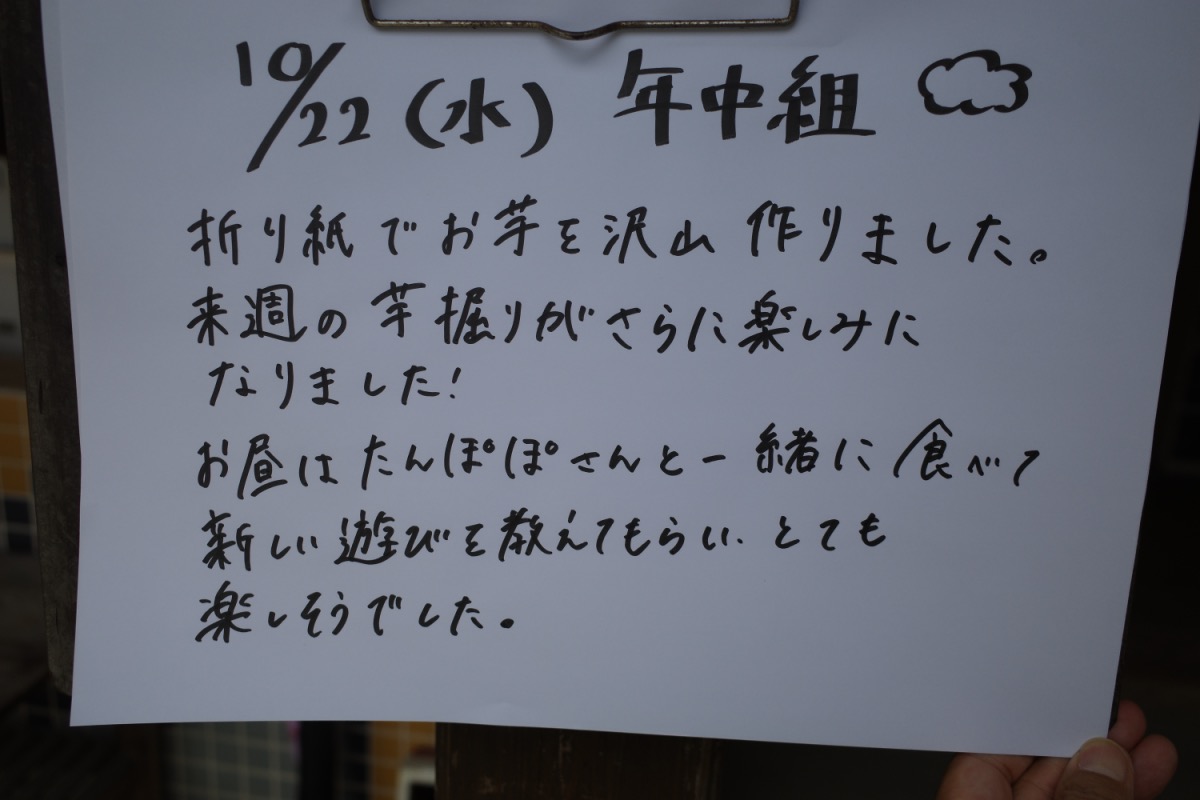 10/22（水） 年中組
折り紙でお芋を沢山 作りました。
来週の芋掘りがさらに楽しみに
なりました！
お昼はたんぽぽさんと一緒に食べて
新しい遊びを教えてもらい、とても
楽しそうでした。